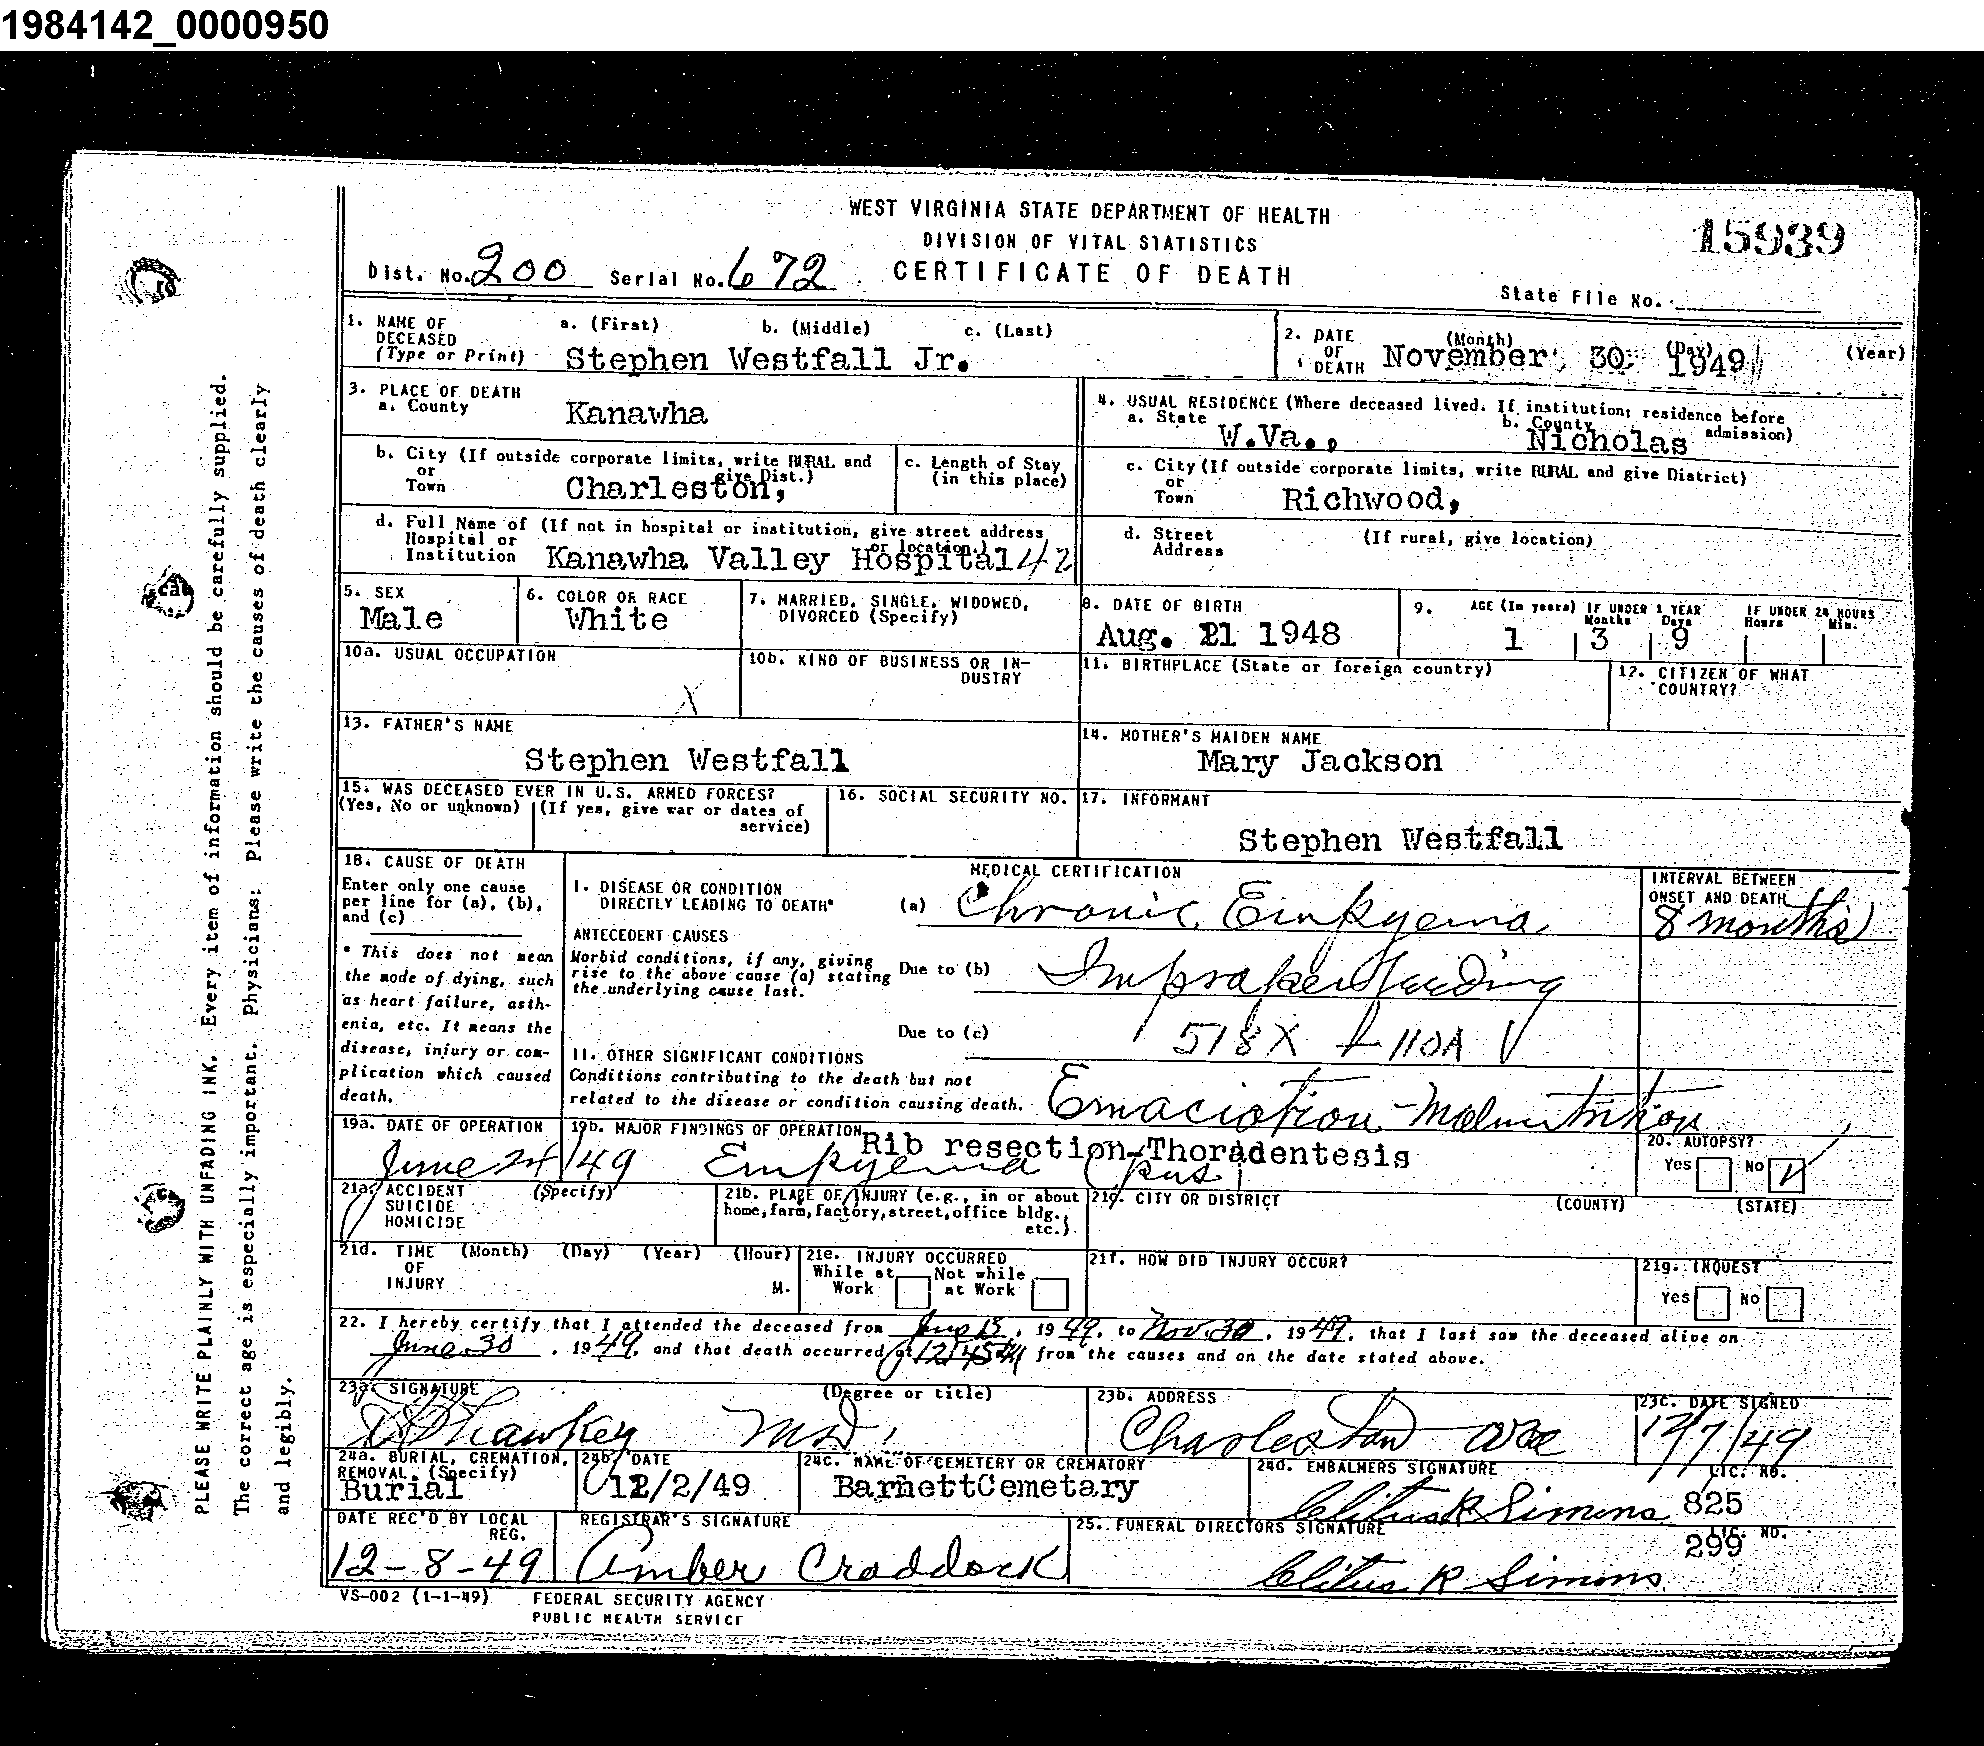 1984142_0000950
WEST VIRGINIA STATE DEPARTMENT OF HEALTH
DIVISION OF VITAL STATISTICS
15939
Dist. No. 200 Serial No. 672 CERTIFICATE OF DEATH
State File No.
1. NAME OF DECEASED (Type or Print) a. (First) b. (Middle) c. (Last)
Stephen Westfall Jr.
2. DATE OF DEATH (Month) (Day) (Year)
November 30 1949
3. PLACE OF DEATH
a. County Kanawha
4. USUAL RESIDENCE (Where deceased lived. If institution; residence before admission)
a. State W.Va., b. County Nicholas
b. City (If outside corporate limits, write RURAL and give Dist.) or Town Charleston,
c. Length of Stay (in this place)
c. City (If outside corporate limits, write RURAL and give District) or Town Richwood,
d. Full Name of (If not in hospital or institution, give street address or location.) Hospital or Institution Kanawha Valley Hospital 42
d. Street Address (If rural, give location)
5. SEX Male
6. COLOR OR RACE White
7. MARRIED, SINGLE, WIDOWED, DIVORCED (Specify)
8. DATE OF BIRTH Aug. 21 1948
9. AGE (In years) IF UNDER 1 YEAR Months Days IF UNDER 24 HOURS Hours Min.
1 3 9
10a. USUAL OCCUPATION X
10b. KIND OF BUSINESS OR INDUSTRY
11. BIRTHPLACE (State or foreign country)
12. CITIZEN OF WHAT COUNTRY?
13. FATHER'S NAME
Stephen Westfall
14. MOTHER'S MAIDEN NAME
Mary Jackson
15. WAS DECEASED EVER IN U.S. ARMED FORCES?
(Yes, No or unknown) (If yes, give war or dates of service)
16. SOCIAL SECURITY NO.
17. INFORMANT
Stephen Westfall
18. CAUSE OF DEATH
Enter only one cause per line for (a), (b), and (c)
* This does not mean the mode of dying, such as heart failure, asthenia, etc. It means the disease, injury or complication which caused death.
MEDICAL CERTIFICATION
INTERVAL BETWEEN ONSET AND DEATH
I. DISEASE OR CONDITION DIRECTLY LEADING TO DEATH* (a) Chronic Empyema 8 months
ANTECEDENT CAUSES
Morbid conditions, if any, giving rise to the above cause (a) stating the underlying cause last.
Due to (b) Improper feeding
Due to (c) 518X
II. OTHER SIGNIFICANT CONDITIONS
Conditions contributing to the death but not related to the disease or condition causing death. Emaciation - Malnutrition
19a. DATE OF OPERATION
June 24/49
19b. MAJOR FINDINGS OF OPERATION Rib resection-Thoradentesis
Empyema (pus)
20. AUTOPSY?
Yes No V
21a. ACCIDENT SUICIDE HOMICIDE (Specify)
21b. PLACE OF INJURY (e.g., in or about home, farm, factory, street, office bldg., etc.)
21c. CITY OR DISTRICT (COUNTY) (STATE)
21d. TIME OF INJURY (Month) (Day) (Year) (Hour) M.
21e. INJURY OCCURRED
While at Work Not while at Work
21f. HOW DID INJURY OCCUR?
21g. INQUEST
Yes No
22. I hereby certify that I attended the deceased from June 13, 1949, to Nov. 30, 1949, that I last saw the deceased alive on
June 30, 1949, and that death occurred at 12:45 from the causes and on the date stated above.
23a. SIGNATURE (Degree or title)
Hawkey MD
23b. ADDRESS
Charleston
23c. DATE SIGNED
12/7/49
24a. BURIAL, CREMATION, REMOVAL, (Specify)
Burial
24b. DATE
12/2/49
24c. NAME OF CEMETERY OR CREMATORY
BarnettCemetary
24d. EMBALMERS SIGNATURE LIC. NO.
Clitus R Simons 825
DATE REC'D BY LOCAL REG.
12-8-49
REGISTRAR'S SIGNATURE
Amber Craddock
25. FUNERAL DIRECTORS SIGNATURE LIC. NO.
299
Clitus R Simons
VS-002 (1-1-49) FEDERAL SECURITY AGENCY
PUBLIC HEALTH SERVICE
PLEASE WRITE PLAINLY WITH UNFADING INK. Every item of information should be carefully supplied.
The correct age is especially important. Physicians: Please write the causes of death clearly
and legibly.